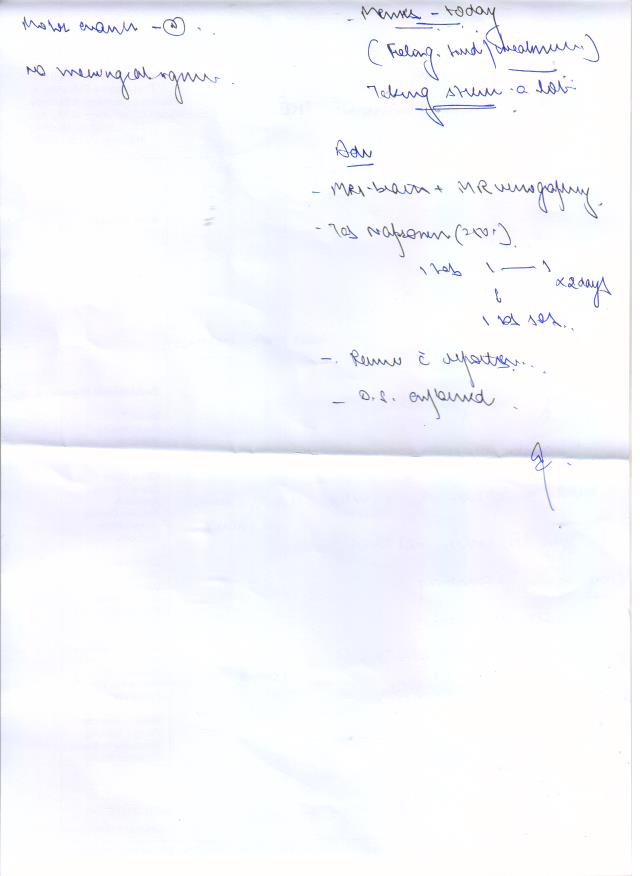 Motor exam - (N)
no meningeal signs
- Menses - today
(Feeling tired /
Taking stress a lot
Adv
- MRI-brain + MR venography
- Tab naproxen (250)
1 tab 1 — 1 x 2 days
↓
1 tab sos
- Review c̄ reports
- D.S. explained